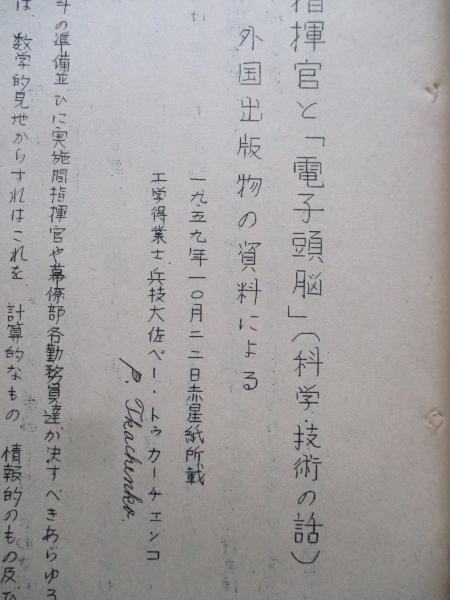 指揮官と「電子頭脳」（科学・技術の話）
外国出版物の資料による
一九五九年一〇月二二日赤星紙所載
工学得業士、兵技大佐ペー・トゥカーチェンコ
P. Tkachenko.
斗の準備並びに実施間指揮官や幕僚部各勤務員達が決すべきあらゆる
は、数学的見地からすればこれを、計算的なもの、情報的のもの及び